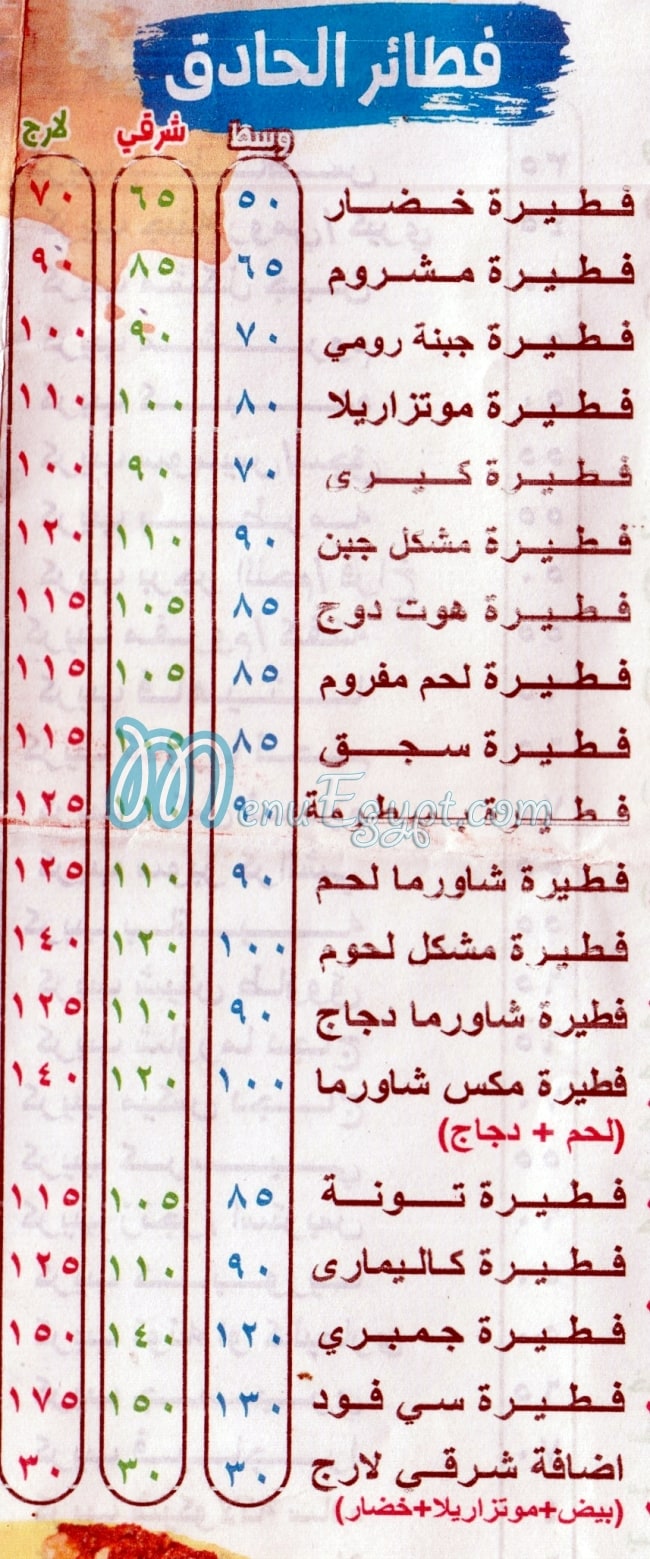 فطائر الحادق
وسط شرقي لارج
فطيرة خضار ٥٠ ٦٥ ٧٠
فطيرة مشروم ٦٥ ٨٥ ٩٠
فطيرة جبنة رومي ٧٠ ٩٠ ١٠٠
فطيرة موتزاريلا ٨٠ ١٠٠ ١١٠
فطيرة كيرى ٧٠ ٩٠ ١٠٠
فطيرة مشكل جبن ٩٠ ١١٠ ١٢٠
فطيرة هوت دوج ٨٥ ١٠٥ ١١٥
فطيرة لحم مفروم ٨٥ ١٠٥ ١١٥
فطيرة سجق ٨٥ ١٠٥ ١١٥
MenuEgypt.com
فطيرة بسطرمة ٩٠ ١١٠ ١٢٥
فطيرة شاورما لحم ٩٠ ١١٠ ١٢٥
فطيرة مشكل لحوم ١٠٠ ١٢٠ ١٤٠
فطيرة شاورما دجاج ٩٠ ١١٠ ١٢٥
فطيرة مكس شاورما ١٠٠ ١٢٠ ١٤٠
(لحم + دجاج)
فطيرة تونة ٨٥ ١٠٥ ١١٥
فطيرة كاليمارى ٩٠ ١١٠ ١٢٥
فطيرة جمبري ١٢٠ ١٤٠ ١٥٠
فطيرة سي فود ١٣٠ ١٥٠ ١٧٥
اضافة شرقي لارج ٣٠ ٣٠ ٣٠
(بيض+موتزاريلا+خضار)